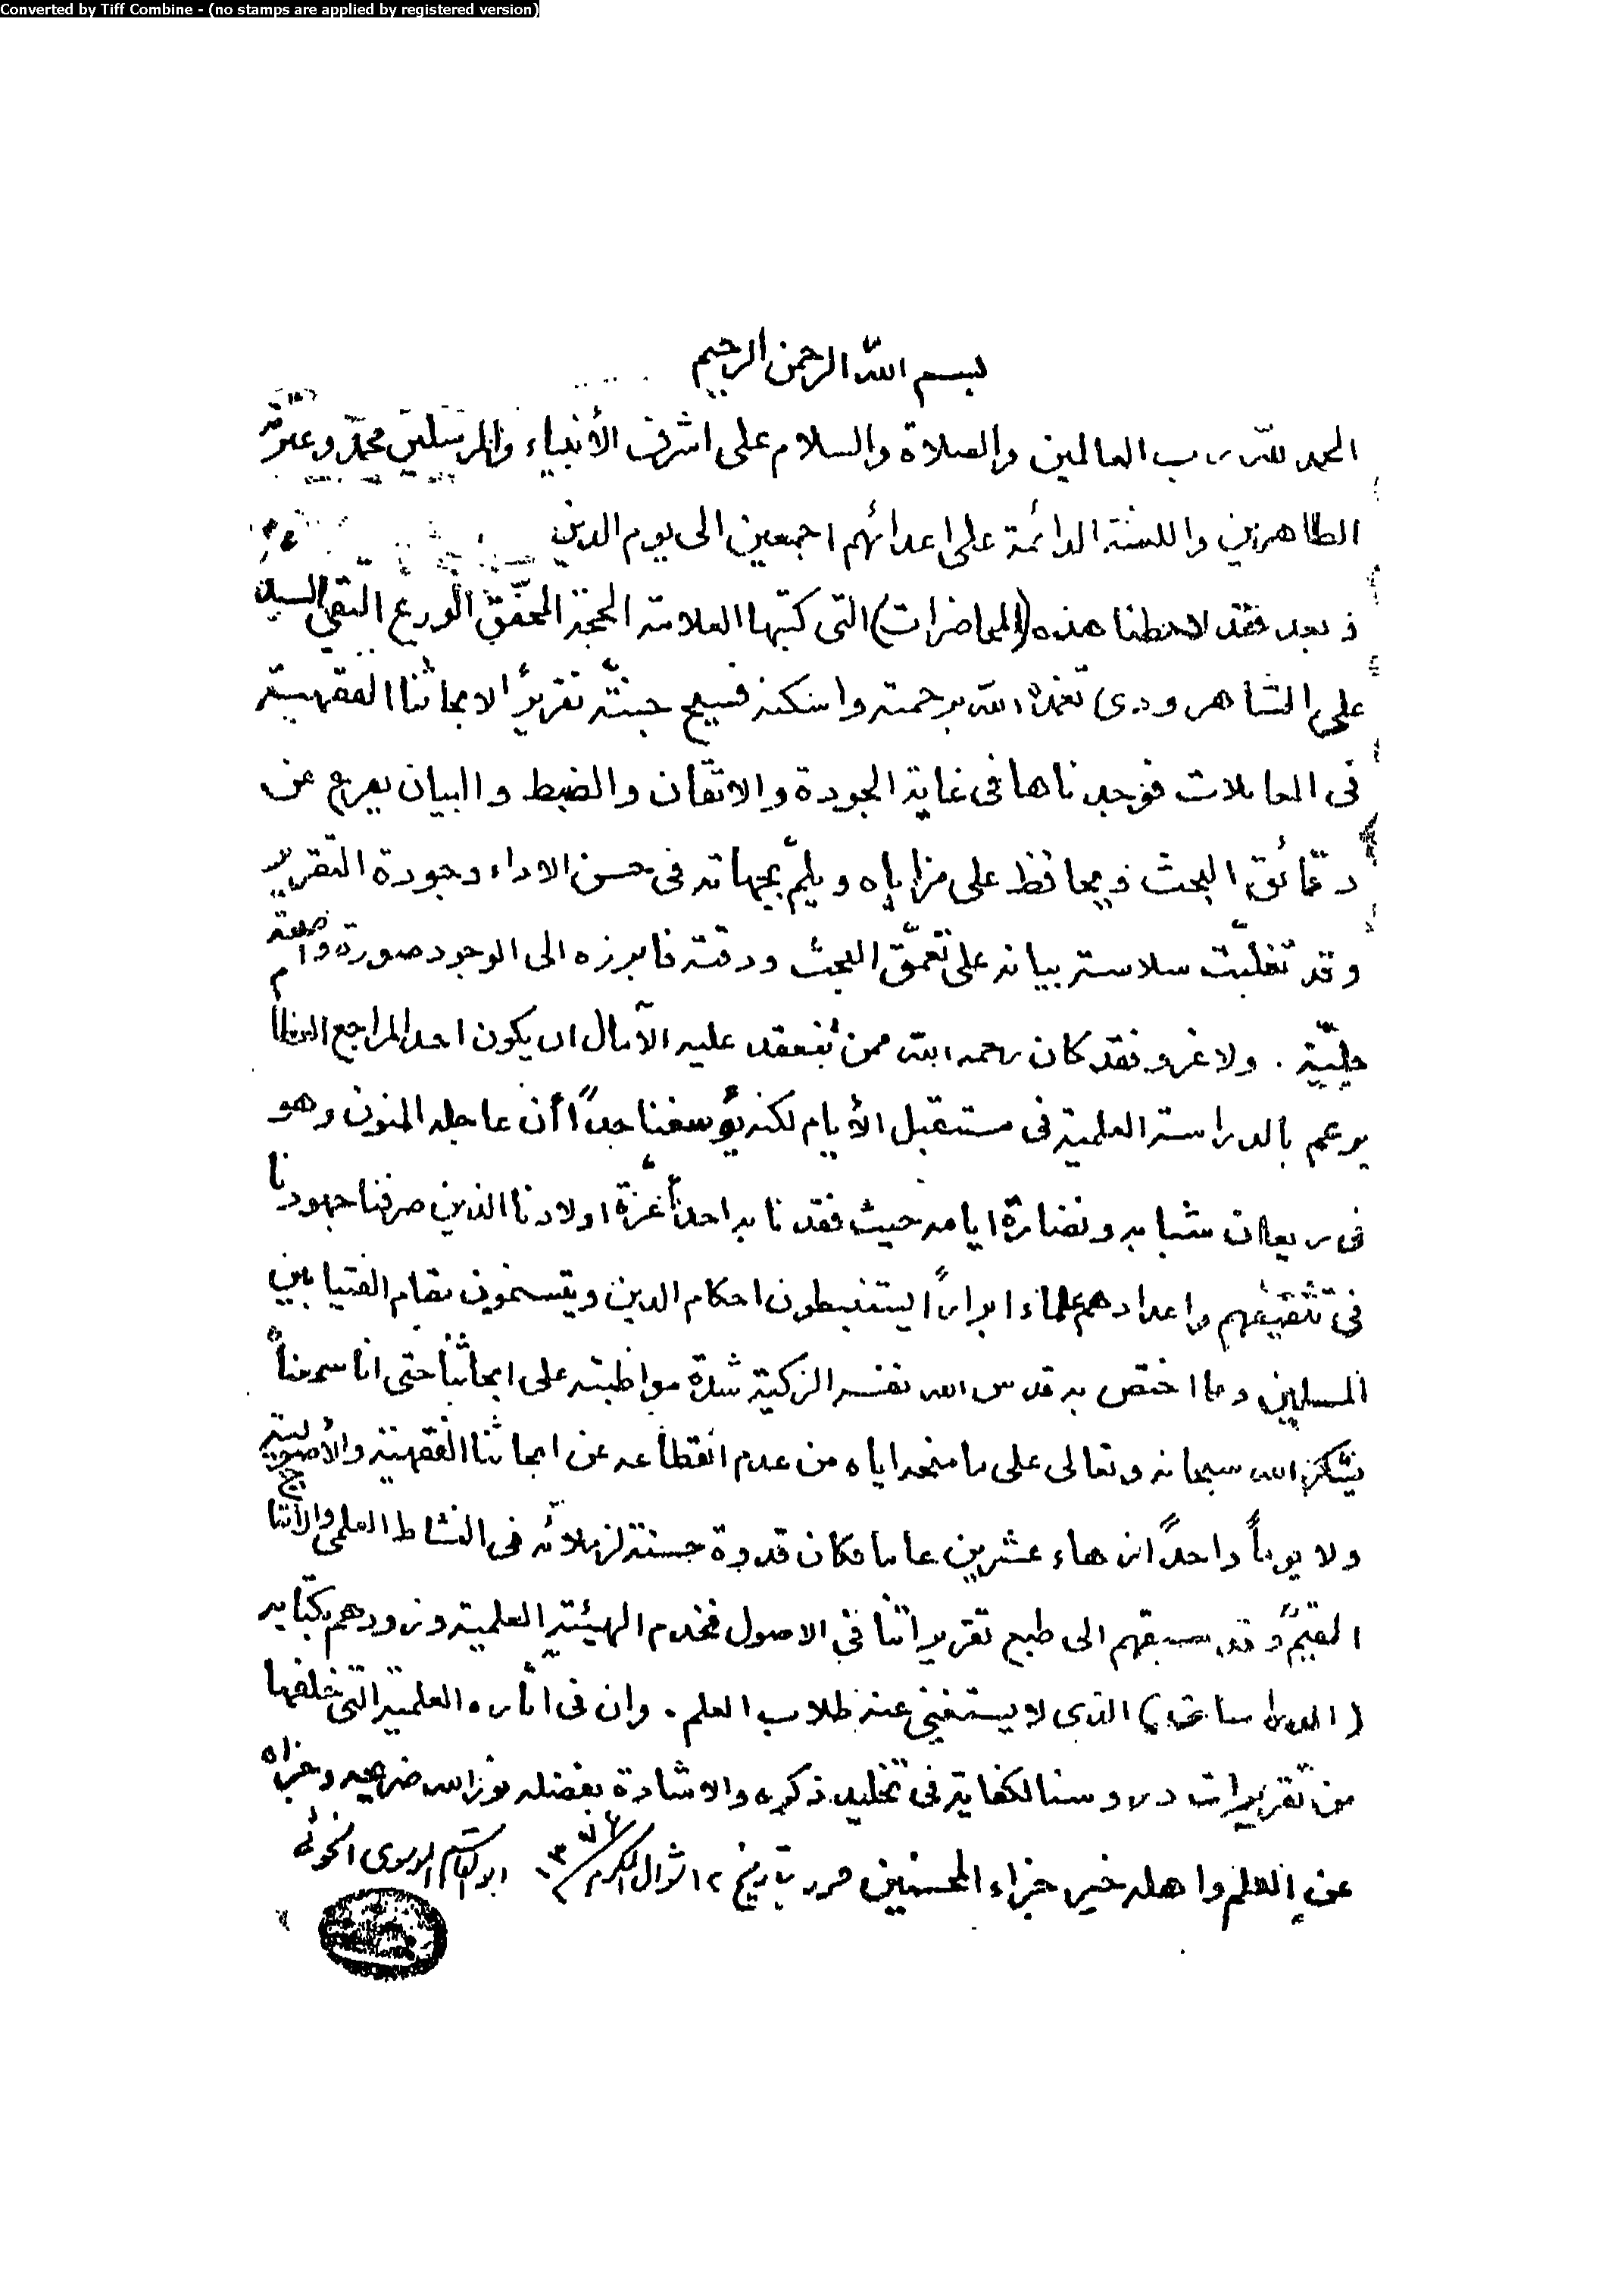 Converted by Tiff Combine - (no stamps are applied by registered version)
بسم الله الرحمن الرحيم
الحمد لله رب العالمين والصلاة والسلام على اشرف الأنبياء والمرسلين محمد وعترته
الطاهرين واللعنة الدائمة على اعدائهم اجمعين الى يوم الدين
و بعد فقد لاحظنا هذه (المحاضرات) التى كتبها العلامة الحجة المحقق الورع التقي السيد
على الشاهرودى تغمده الله برحمته واسكنه فسيح جنته تقريرًا لابحاثنا الفقهية
فى المعاملات فوجدناها فى غاية الجودة والاتقان والضبط والبيان يعرب عن
دقائق البحث ويحافظ على مزاياه ويلمّ بجهاته فى حسن الاداء وجودة التقرير
وقد تغلبّت سلاسة بيانه على تعمّق البحث ودقته فابرزه الى الوجود صورة واضحة
جليّة . ولا غرو فقد كان رحمه الله ممن تنعقد عليه الآمال ان يكون احد المراجع العظام
يزعم بالدراسة العلمية فى مستقبل الأيام لكنه يؤسفنا جدًا أن عاجله المنون وهو
فى ريعان شبابه ونضارة ايامه حيث فقدنا به احد أعزة اولادنا الذين صرفنا جهودنا
فى تثقيفهم واعدادهم علماء ابرارًا يستنبطون احكام الدين ويتسنمون مقام الفتيا بين
المسلمين ومما اختص به قدس الله نفسه الزكية شدة مواظبته على ابحاثنا حتى انا سمعناه
يشكر الله سبحانه وتعالى على ما منحه اياه من عدم انقطاعه عن ابحاثنا الفقهية والأصولية
ولا يومًا واحدًا زهاء عشرين عاما فكان قدوة حسنة لزملائه فى النشاط العلمى والانتاج
القيّم وقد سبقهم الى طبع تقريراتنا فى الاصول فخدم الهيئة العلمية وزودهم بكتابه
(الدراسات) الذى لا يستغنى عنه طلاب العلم . وان فى آثاره العلمية التى خلفها
من تقريرات دروسنا لكفاية فى تخليد ذكره والاشادة بفضله نور الله ضريحه وجزاه
عن العلم واهله خير جزاء المحسنين حرر بتاريخ ١٢ شوال المكرم ١٣٧٦ ابو القاسم الموسوى الخوئى